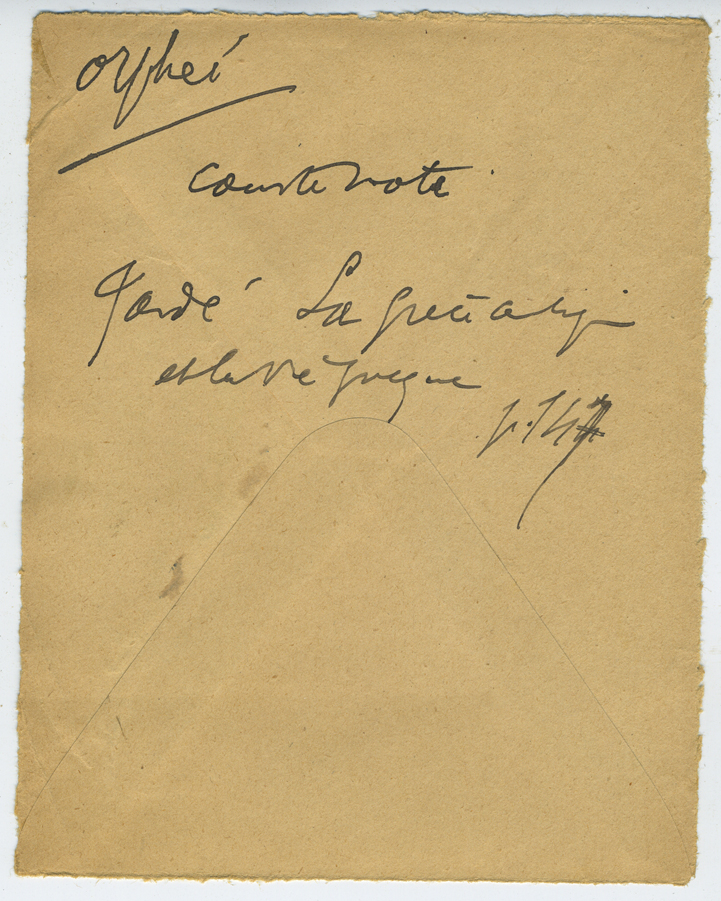 Orphée
courte note.
Jardé La Grèce antique
et la vie grecque
p. 147